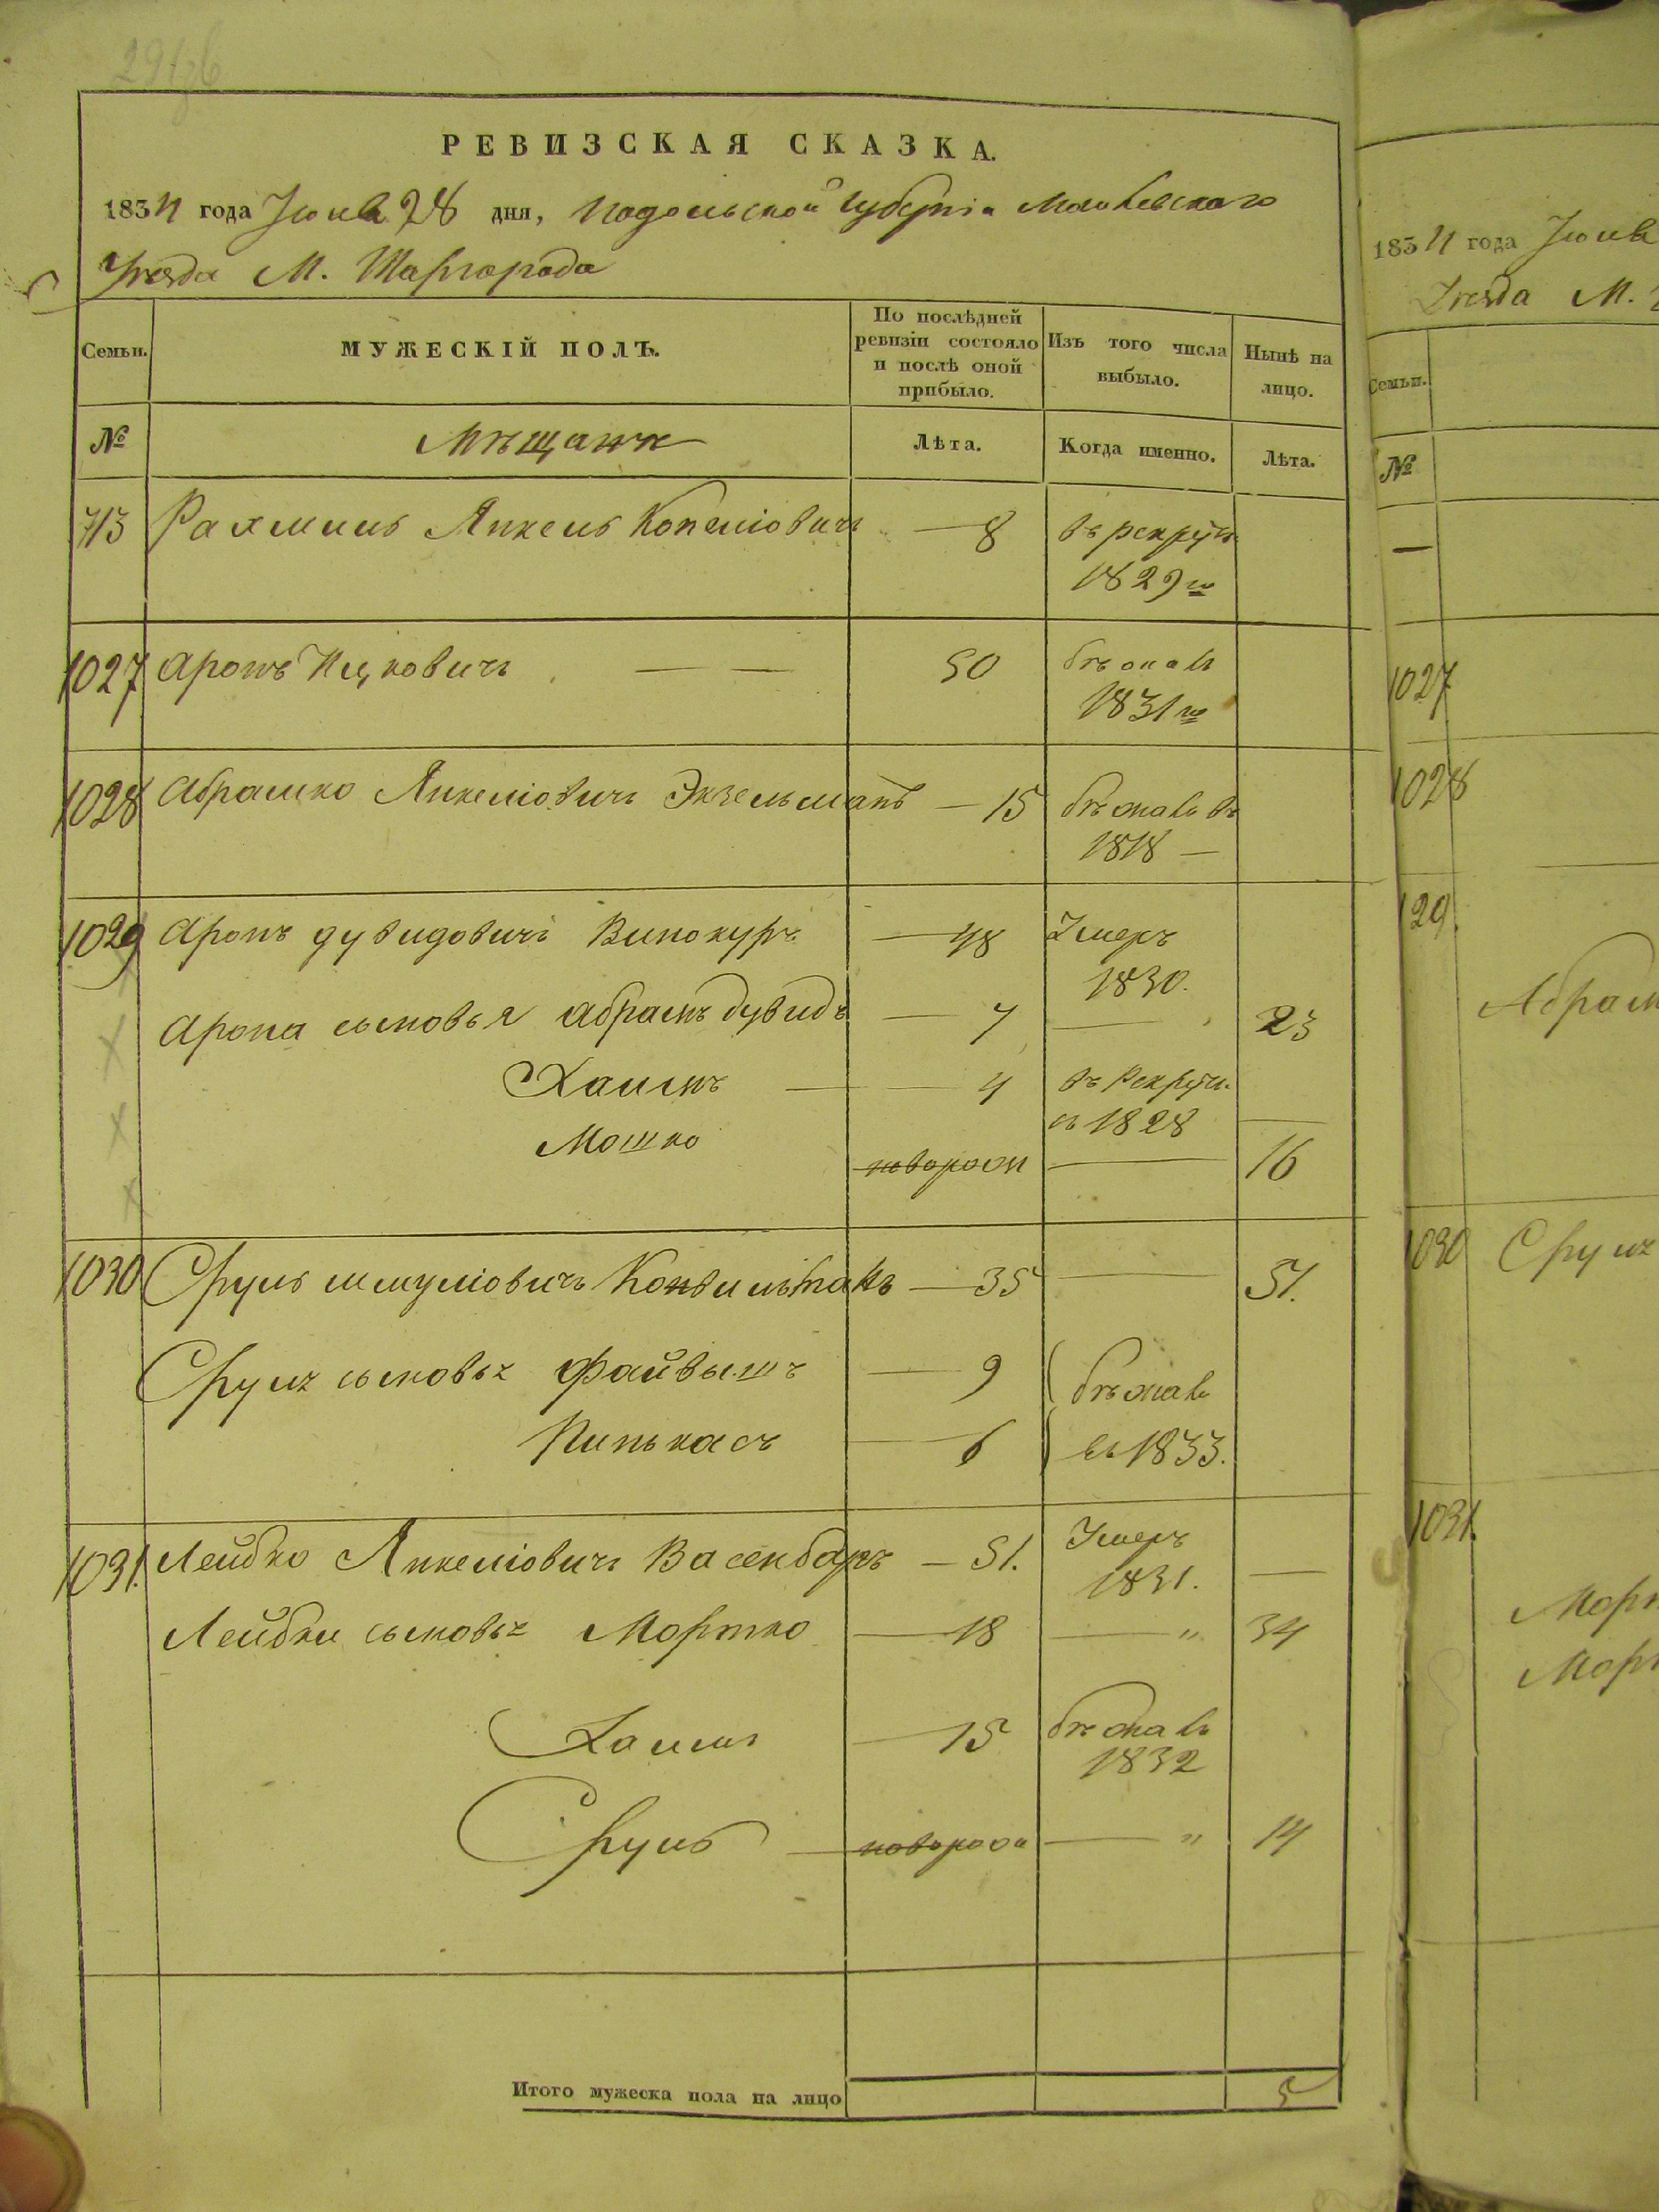 РЕВИЗСКАЯ СКАЗКА.
1834 года Іюня 28 дня, Подольской Губерніи Могилевскаго
Уезда М. Шаргорода
Семьи.
МУЖЕСКІЙ ПОЛЪ.
По послѣдней
ревизіи состояло
и послѣ оной
прибыло.
Изъ того числа
выбыло.
Нынѣ на
лицо.
№
Мѣщане
Лѣта.
Когда именно.
Лѣта.
713 Рахмиль Янкель Копеліовичъ — 8 въ рекруты
1829го
1027 Аронъ Ицковичъ — — 50 бѣжалъ
1831го
1028 Абрамко Янкеліовичъ Экзельманъ — 15 бѣжалъ въ
1818 —
1029 Аронъ Дувидовичъ Винокуръ — 48 Умеръ
1830.
Арона сыновья Абрамъ Дувидъ — 7 — 23
Хаимъ — 4 въ Рекруты
въ 1828 —
Мошко новорож — 16
1030 Сруль Шмуліовичъ — 35 — 51.
Сруля сыновья Файвышъ — 9 бѣжалъ
Пинькасъ — 6 въ 1833.
1031. Лейбко Янкеліовичъ — 51. Умеръ
1831. —
Лейбки сыновья Мортко — 18 — " 34
Хаимъ — 15 бѣжалъ
1832
Сруль — новорож — " 14
Итого мужеска пола на лицо 5
1834 года Іюня
Уезда М.
Семьи.
№
—
1027
1028
129.
Абрам
1030 Сруля
1031.
Морт
Морт